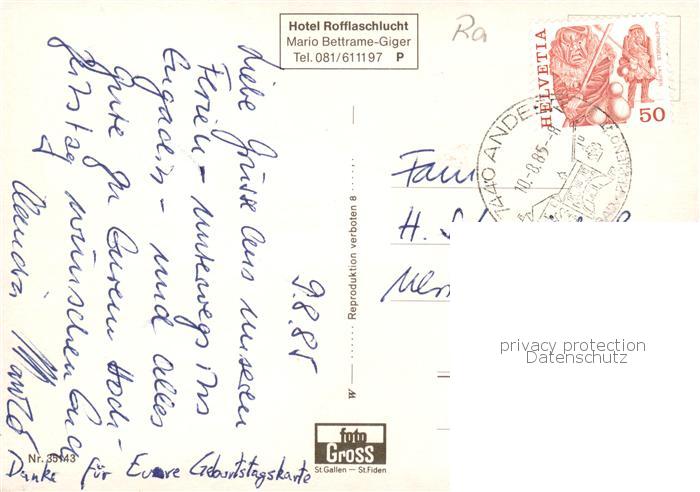 Hotel Rofflaschlucht
Mario Bettrame-Giger
Tel. 081/611197 P
Ra
HELVETIA
50
7440 ANDE
10.-8.85.-8
9.8.85
Liebe Grüsse aus unseren
Ferien - unterwegs ins
Engadin - und alles
Gute zu Eurem Hoch-
zitstag wünschen Euch
Claudia
Danke für Euere Geburtstagskarte
Fam
H.
Reproduktion verboten 8
privacy protection
Datenschutz
foto
GROSS
St.Gallen – St.Fiden
Nr. 35143